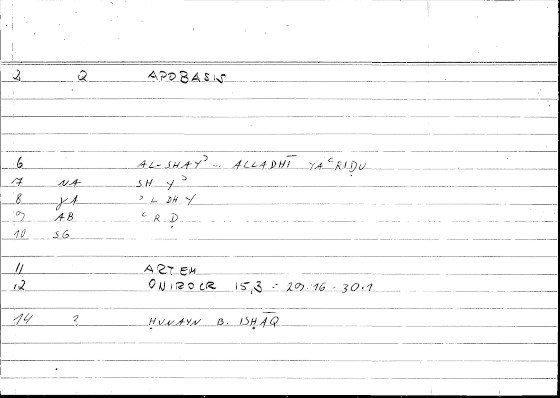 2 Q APOBASIS
6 AL-SHAYʾ... ALLADHĪ YAʿRIḌU
7 NA SH Yʾ
8 γA ʾL DH Y
9 AB ʿR Ḍ
10 SG
11 ARTEM
12 ONIROCR 15,3 = 29.16 - 30.1
14 ? ḤUNAYN B. ISḤĀQ